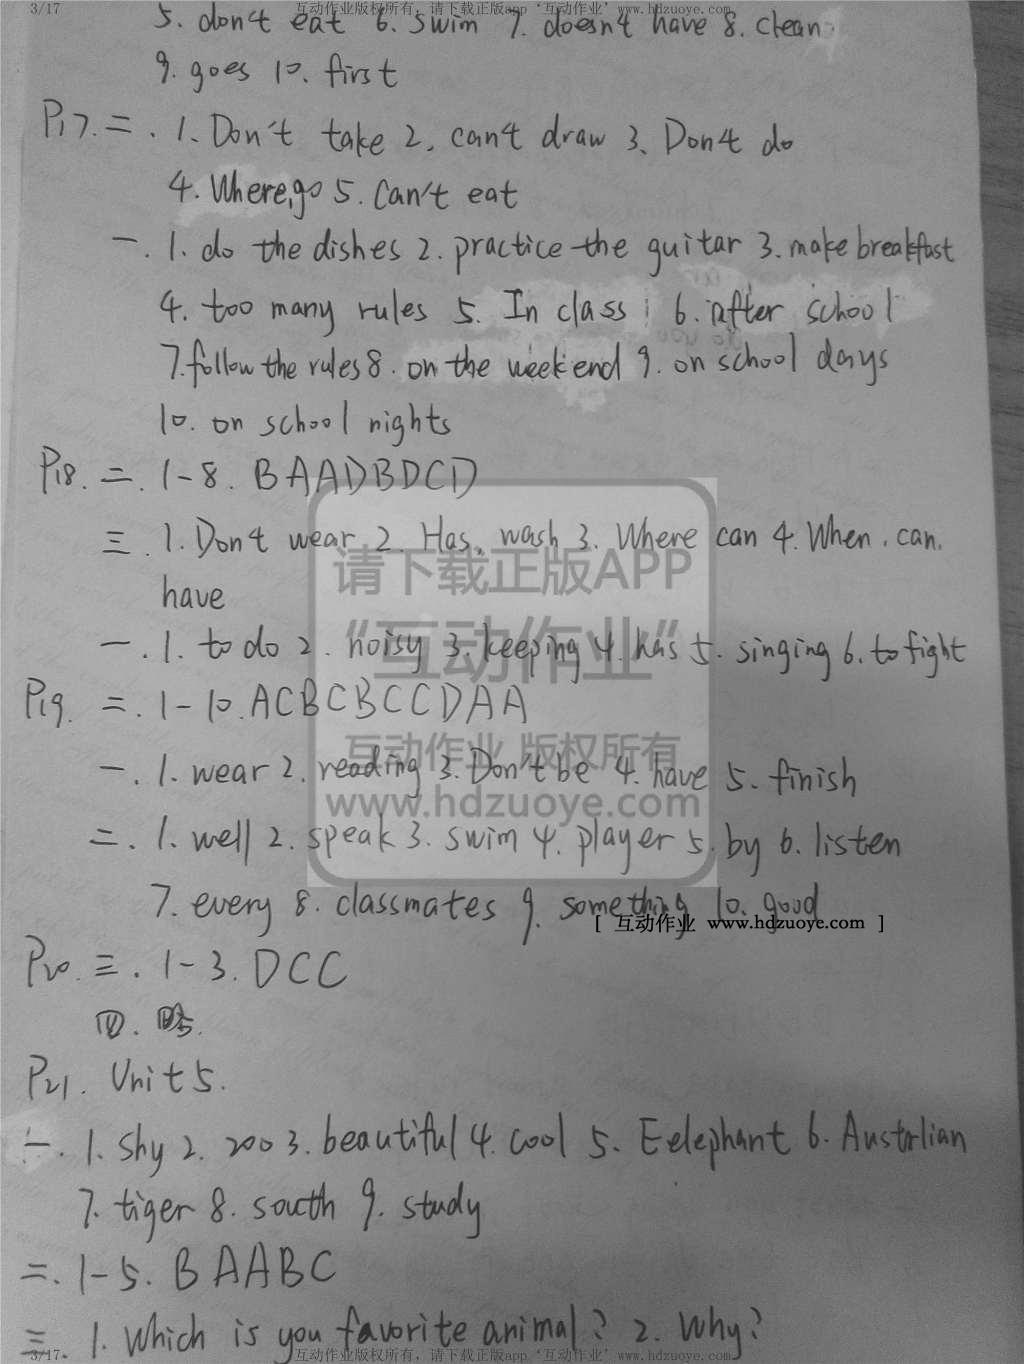 3/17 互动作业版权所有，请下载正版app‘互动作业’www.hdzuoye.com
5. don't eat 6. swim 7. doesn't have 8. clean
9. goes 10. first
P17. 二. 1. Don't take 2. can't draw 3. Don't do
4. Where, go 5. Can't eat
一. 1. do the dishes 2. practice the guitar 3. make breakfast
4. too many rules 5. In class 6. after school
7. follow the rules 8. on the weekend 9. on school days
10. on school nights
P18. 二. 1-8. BAADBDCD
三. 1. Don't wear 2. Has, wash 3. Where can 4. When, can,
请下载正版APP
have
“互动作业”
一. 1. to do 2. noisy 3. keeping 4. has 5. singing 6. to fight
P19. 二. 1-10. ACBCBCCDAA
互动作业 版权所有
一. 1. wear 2. reading 3. Don't be 4. have 5. finish
www.hdzuoye.com
二. 1. well 2. speak 3. swim 4. player 5. by 6. listen
7. every 8. classmates 9. something 10. good
[ 互动作业 www.hdzuoye.com ]
P20. 三. 1-3. DCC
四. 略.
P21. Unit 5.
一. 1. shy 2. zoo 3. beautiful 4. cool 5. Eelephant 6. Austrlian
7. tiger 8. south 9. study
二. 1-5. BAABC
三. 1. Which is you favorite animal? 2. Why?
3/17 互动作业版权所有，请下载正版app‘互动作业’www.hdzuoye.com